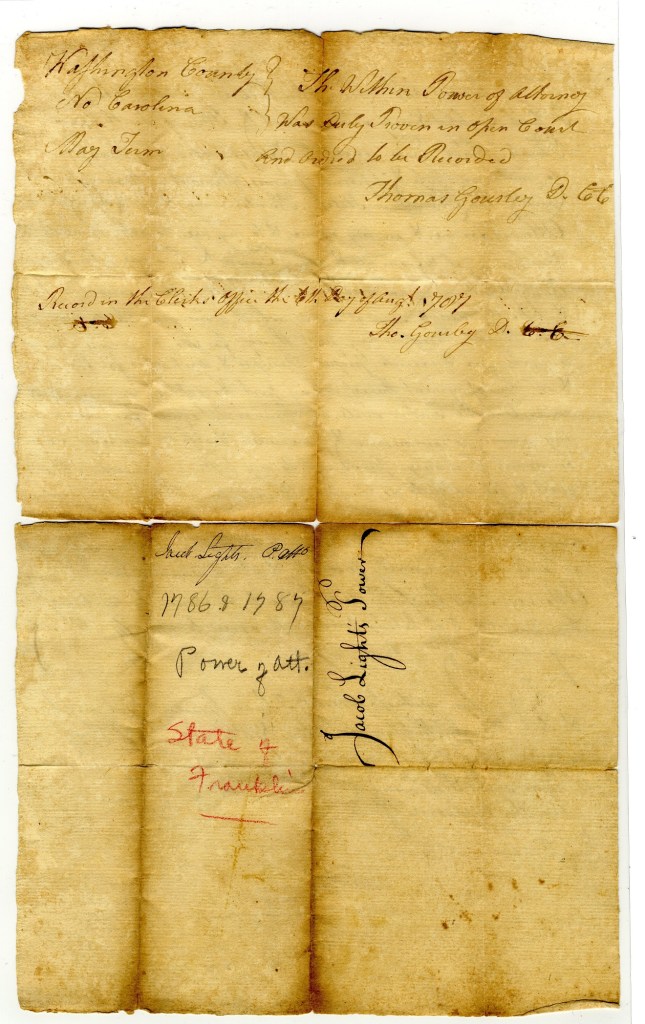 Washington County
No Carolina
May Term
The Within Power of Attorney
Was duly Proven in open Court
And Ordred to be Recorded
Thomas Gourley D. CC
Record in the Clerks office the Day of Augt. 1787
Tho. Gourley D. C. C.
Jacob Lights. P. Atto
1786 & 1787
Power of Att.
State of
Franklin
Jacob Light's Power